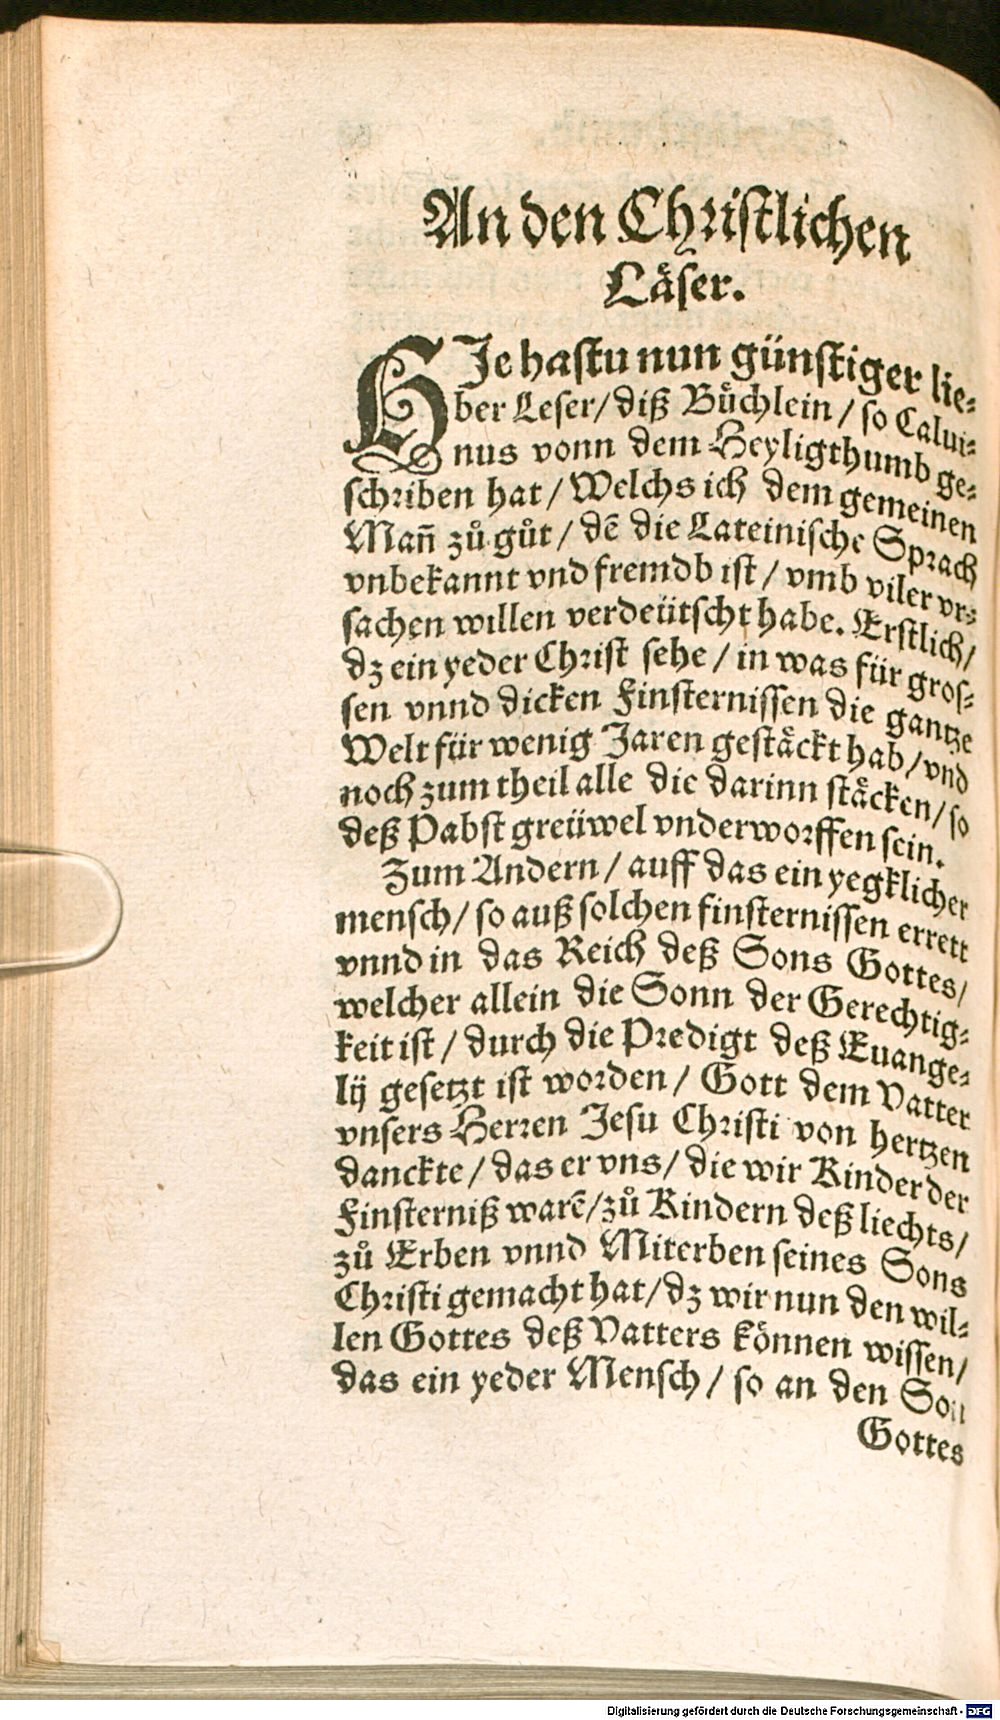 An den Christlichen
Läser.
HJe hastu nun günstiger lie-
ber Leser/ diß Bůchlein / so Calui-
nus vonn dem Heyligthumb ge-
schriben hat / Welchs ich dem gemeinen
Mañ zů gůt / dē die Lateinische Sprach
vnbekannt vnd frembd ist / vmb viler vr-
sachen willen verdeütscht habe. Erstlich/
dz ein yeder Christ sehe / in was für gros-
sen vnnd dicken Finsternissen die gantze
Welt für wenig Jaren gestäckt hab / vnd
noch zum theil alle die darinn stäcken/ so
deß Pabst greüwel vnderworffen sein.
Zum Andern / auff das ein yegklicher
mensch/ so auß solchen finsternissen errett
vnnd in das Reich deß Sons Gottes/
welcher allein die Sonn der Gerechtig-
keit ist / durch die Predigt deß Euange-
lij gesetzt ist worden / Gott dem Vatter
vnsers Herren Jesu Christi von hertzen
danckte / das er vns / die wir Kinder der
Finsterniß warē/ zů Kindern deß liechts/
zů Erben vnnd Miterben seines Sons
Christi gemacht hat/ dz wir nun den wil-
len Gottes deß Vatters können wissen/
das ein yeder Mensch / so an den Son
Gottes
Digitalisierung gefördert durch die Deutsche Forschungsgemeinschaft - DFG